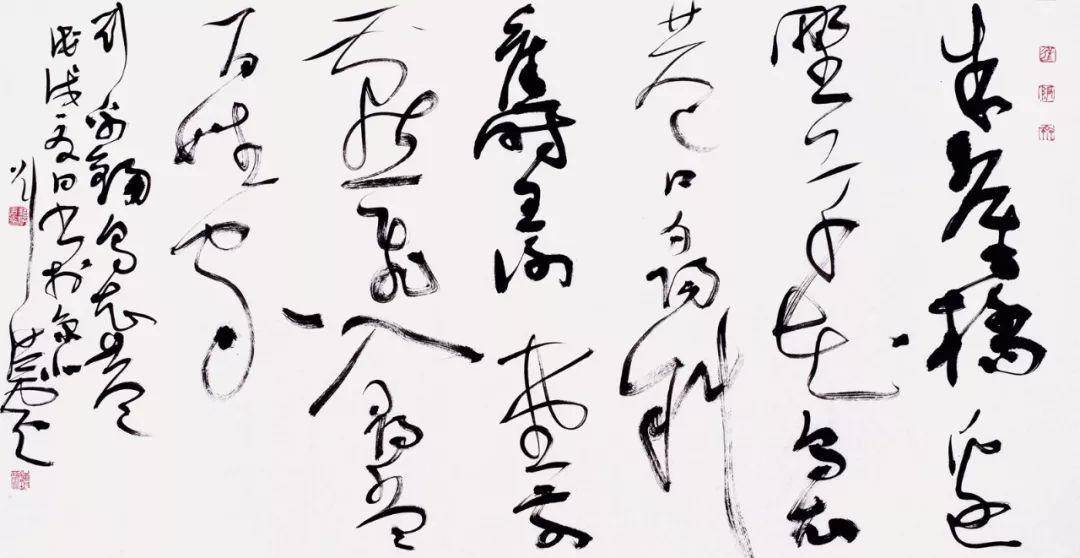 朱雀橋邊
野草花烏衣
巷口夕陽斜
舊時王謝堂前
燕飛入尋常
百姓家
劉禹錫烏衣巷
戊戌夏日书於京北